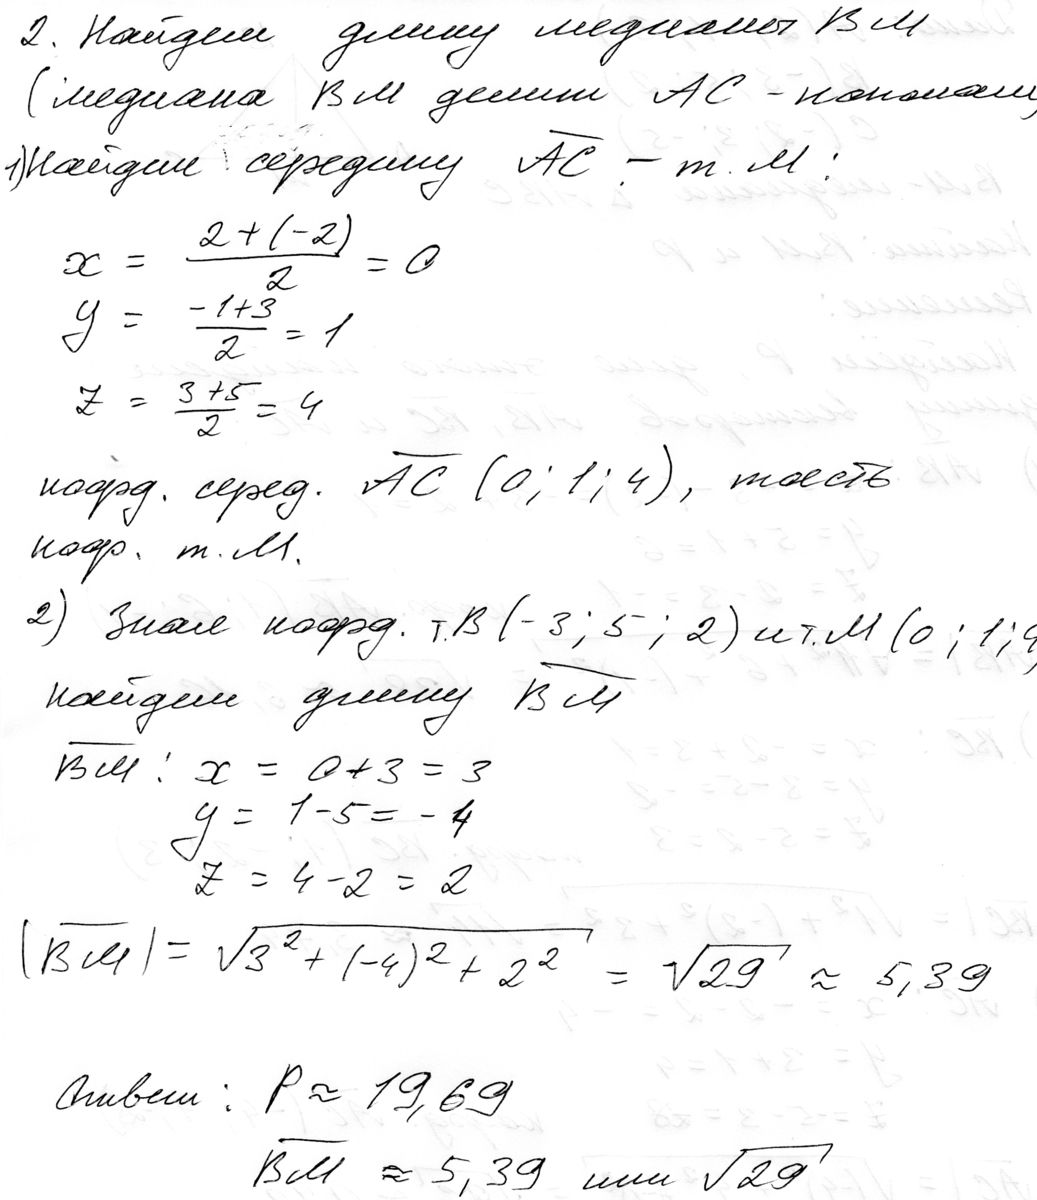 2. Найдем длину медианы ВМ
(медиана ВМ делит АС - пополам)
1) Найдем середину A̅C̅ - т. М:
x = (2+(-2))/2 = 0
y = (-1+3)/2 = 1
z = (3+5)/2 = 4
коорд. серед. A̅C̅ (0; 1; 4), тоесть
коор. т. М.
2) Зная коорд. т. В (-3; 5; 2) и т. М (0; 1; 4)
найдем длину B̅M̅
B̅M̅: x = 0+3 = 3
y = 1-5 = -4
z = 4-2 = 2
|B̅M̅| = √(3² + (-4)² + 2²) = √29 ≈ 5,39
Ответ: P ≈ 19,69
B̅M̅ ≈ 5,39 или √29